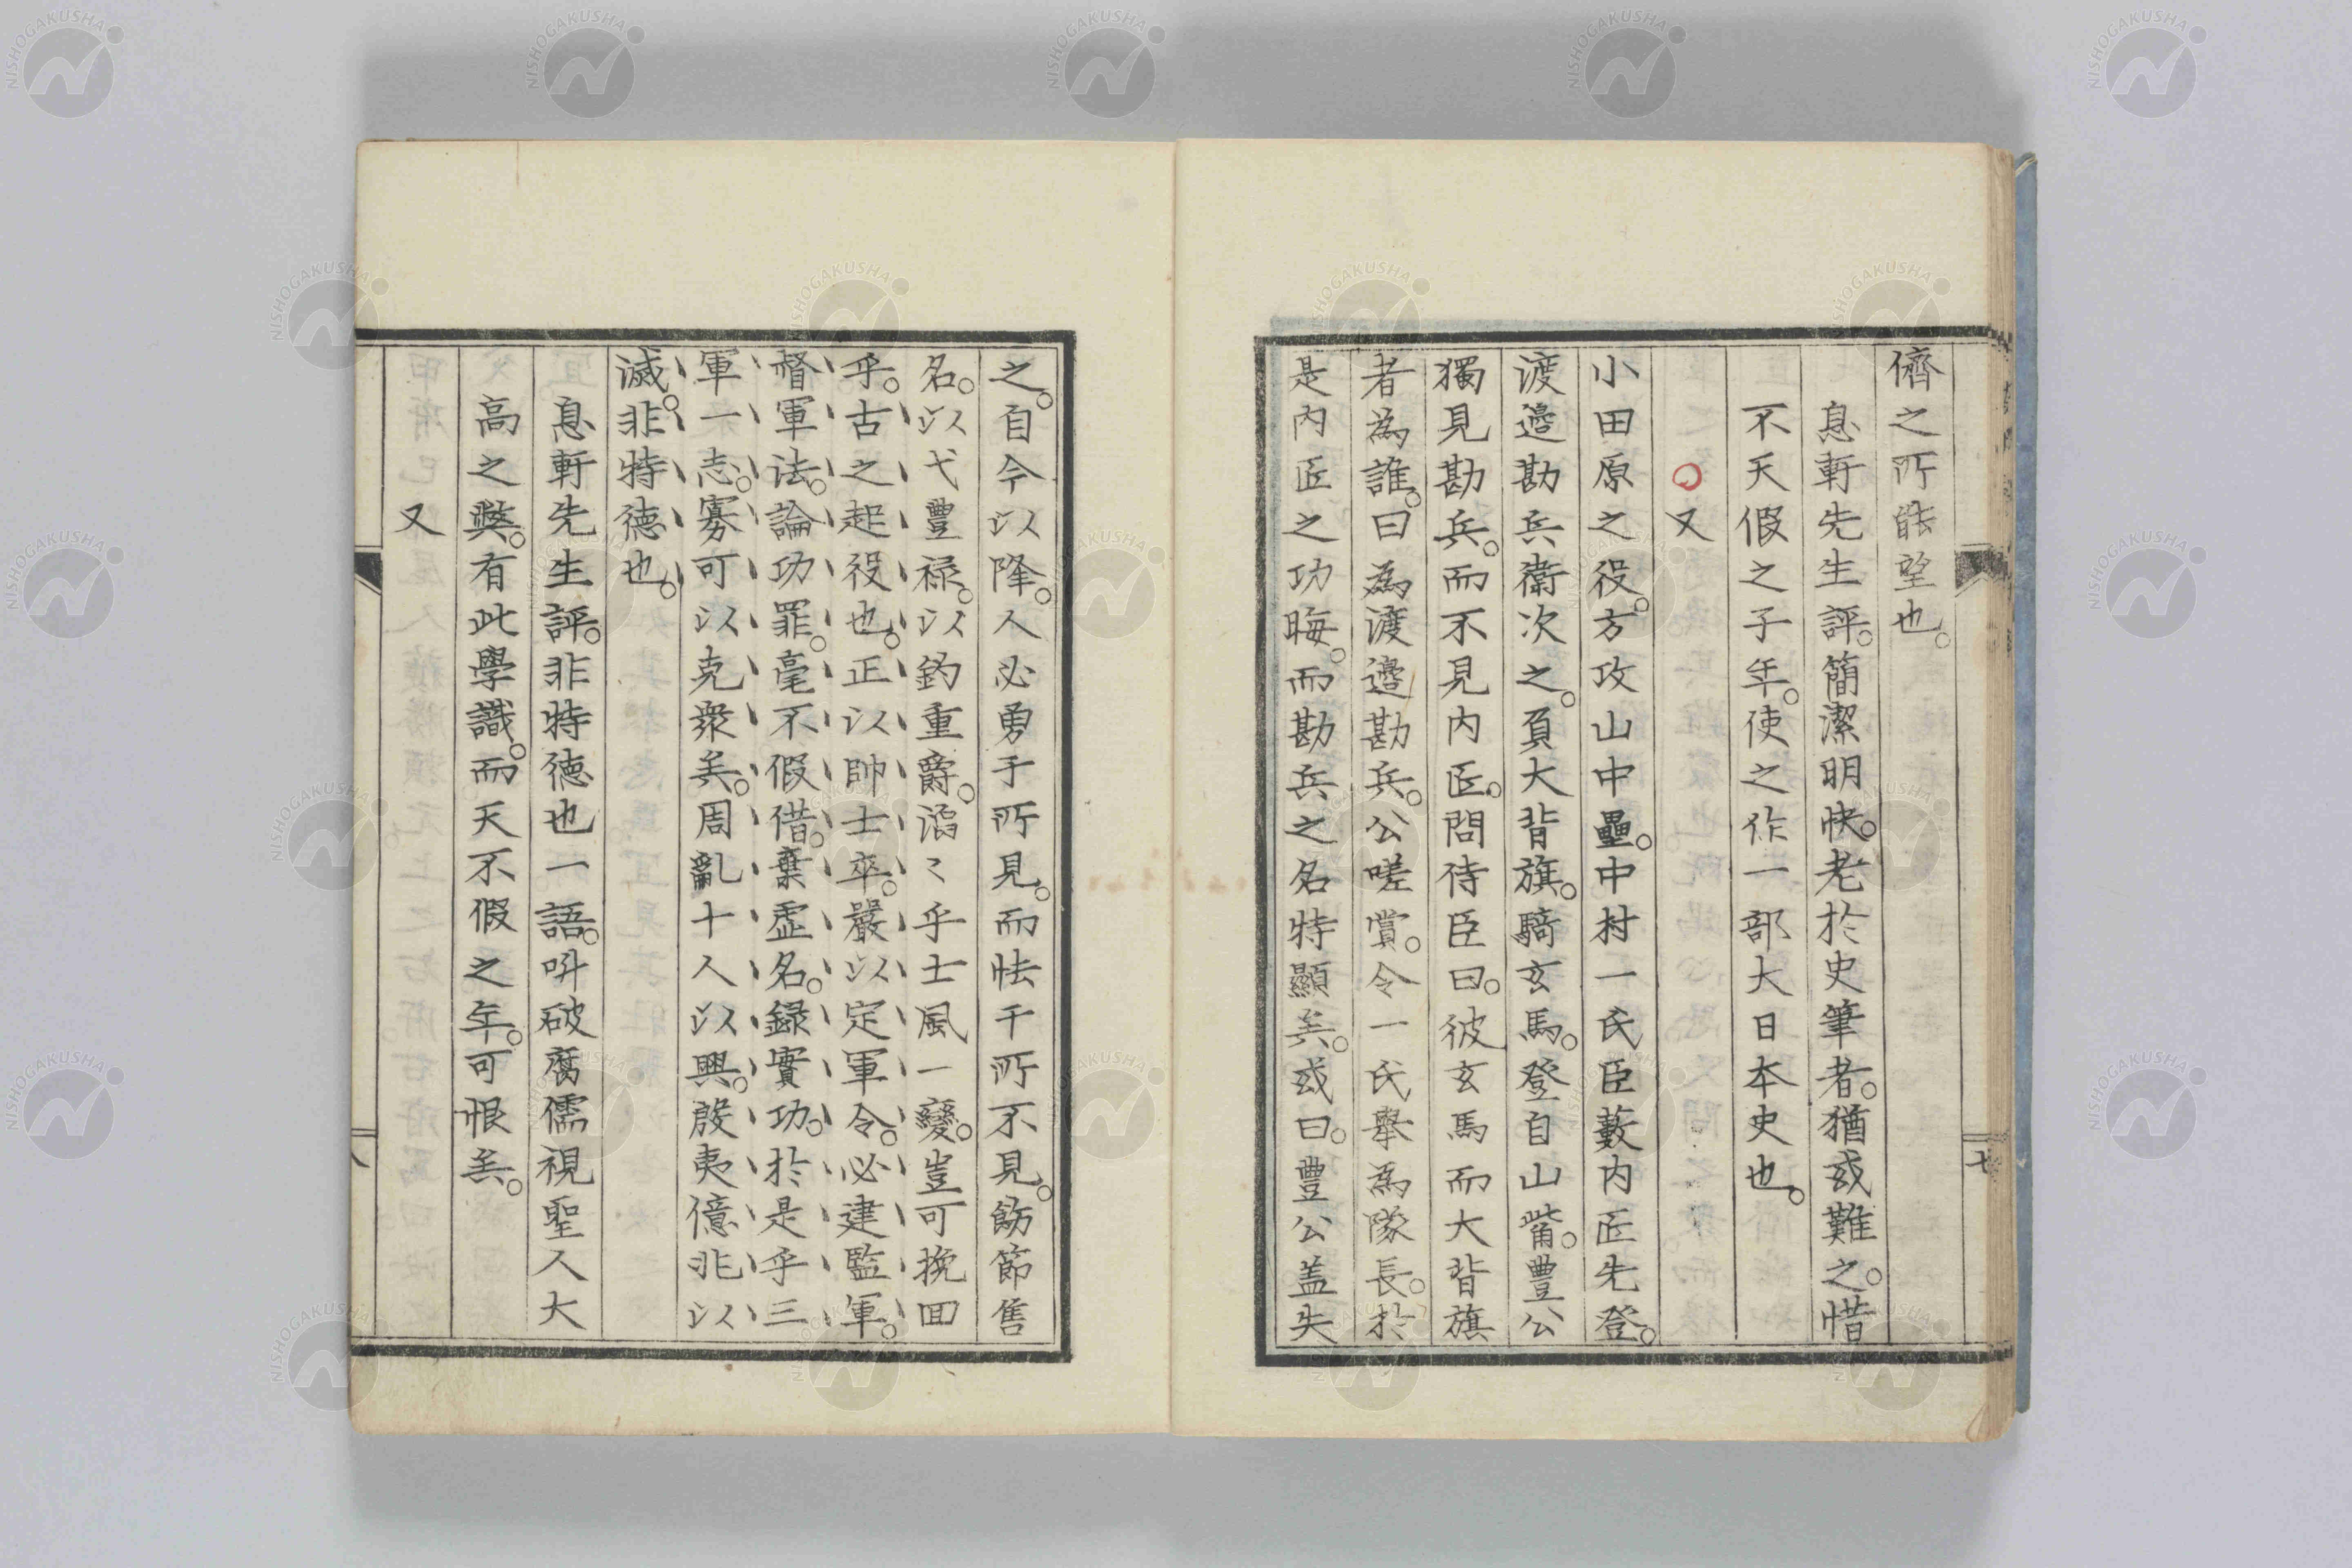 儕之所能望也。
息軒先生評。簡潔明快。老於史筆者。猶或難之。惜
不天假之子年。使之作一部大日本史也。
○又
小田原之役。方攻山中壘。中村一氏臣藪内匠先登。
渡邉勘兵衛次之。負大背旗。騎玄馬。登自山觜。豊公
獨見勘兵。而不見内匠。問侍臣曰。彼玄馬而大背旗
者為誰。曰為渡邉勘兵。公嗟賞。令一氏擧為隊長。於
是内匠之功晦。而勘兵之名特顯矣。或曰。豊公盖失
七
之。自今以降。人必勇于所見。而怯于所不見。飭節售
名。以弋豊禄。以釣重爵。滔〻乎士風一變。豈可挽回
乎。古之起役也。正以帥士卒。嚴以定軍令。必建監軍。
督軍法。論功罪。毫不假借。棄虚名。録實功。於是乎三
軍一志。寡可以克衆矣。周亂十人以興。殷夷億兆以
滅。非特徳也。
息軒先生評。非特徳也一語。呌破腐儒視聖人大
高之弊。有此學識。而天不假之年。可恨矣。
又
八